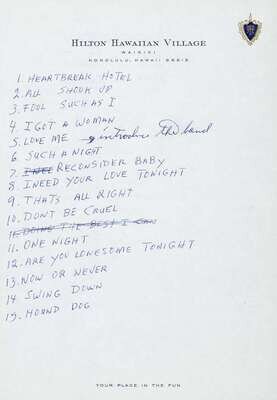 HILTON HAWAIIAN VILLAGE
WAIKIKI
HONOLULU, HAWAII 96815
1. HEARTBREAK HOTEL
2. ALL SHOOK UP
3. FOOL SUCH AS I
4. I GOT A WOMAN
5. LOVE ME introduce the band
6. SUCH A NIGHT
7. RECONSIDER BABY
8. I NEED YOUR LOVE TONIGHT
9. THATS ALL RIGHT
10. DONT BE CRUEL
11. DOING THE BEST I CAN
11. ONE NIGHT
12. ARE YOU LONESOME TONIGHT
13. NOW OR NEVER
14 SWING DOWN
15. HOUND DOG
YOUR PLACE IN THE FUN